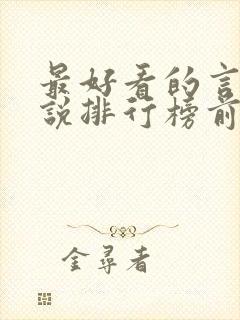 最好看的言
說排行榜前
金尋者